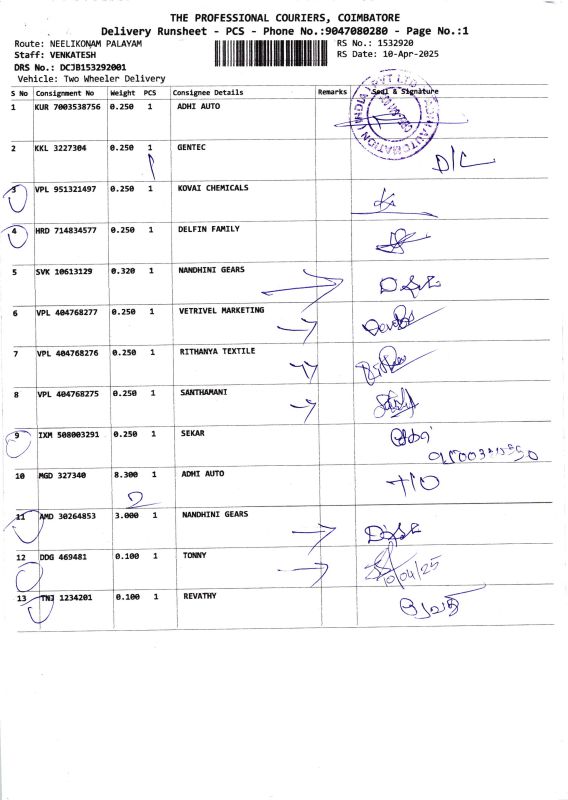 THE PROFESSIONAL COURIERS, COIMBATORE
Delivery Runsheet - PCS - Phone No.:9047080280 - Page No.:1
Route: NEELIKONAM PALAYAM
RS No.: 1532920
Staff: VENKATESH
RS Date: 10-Apr-2025
DRS No.: DCJB153292001
Vehicle: Two Wheeler Delivery
S No Consignment No Weight PCS Consignee Details Remarks Seal & Signature
1 KUR 7003538756 0.250 1 ADHI AUTO
2 KKL 3227304 0.250 1 GENTEC D/C
3 VPL 951321497 0.250 1 KOVAI CHEMICALS
4 HRD 714834577 0.250 1 DELFIN FAMILY
5 SVK 10613129 0.320 1 NANDHINI GEARS
6 VPL 404768277 0.250 1 VETRIVEL MARKETING
7 VPL 404768276 0.250 1 RITHANYA TEXTILE
8 VPL 404768275 0.250 1 SANTHAMANI
9 IXM 508003291 0.250 1 SEKAR
10 MGD 327340 8.300 1 ADHI AUTO
2
11 AMD 30264853 3.000 1 NANDHINI GEARS
12 DDG 469481 0.100 1 TONNY 10/04/25
13 TNJ 1234201 0.100 1 REVATHY